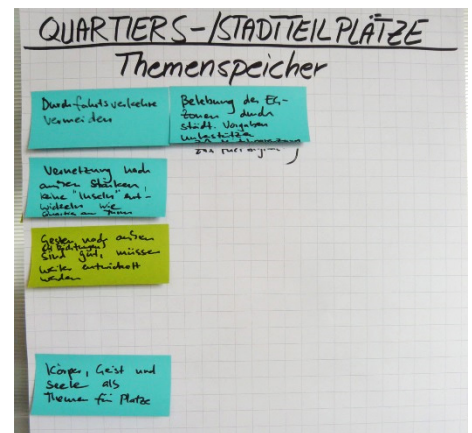 QUARTIERS-/STADTTEILPLÄTZE
Themenspeicher
Durchfahrtsverkehre
vermeiden
Belebung der EG-
Zonen durch
städt. Vorgaben
unterstützen
Vernetzung nach
außen stärken,
keine "Inseln" ent-
wickeln wie
Gesten nach außen
sind gut, müssen
weiter entwickelt
werden
Körper, Geist und
Seele als
Themen für Plätze